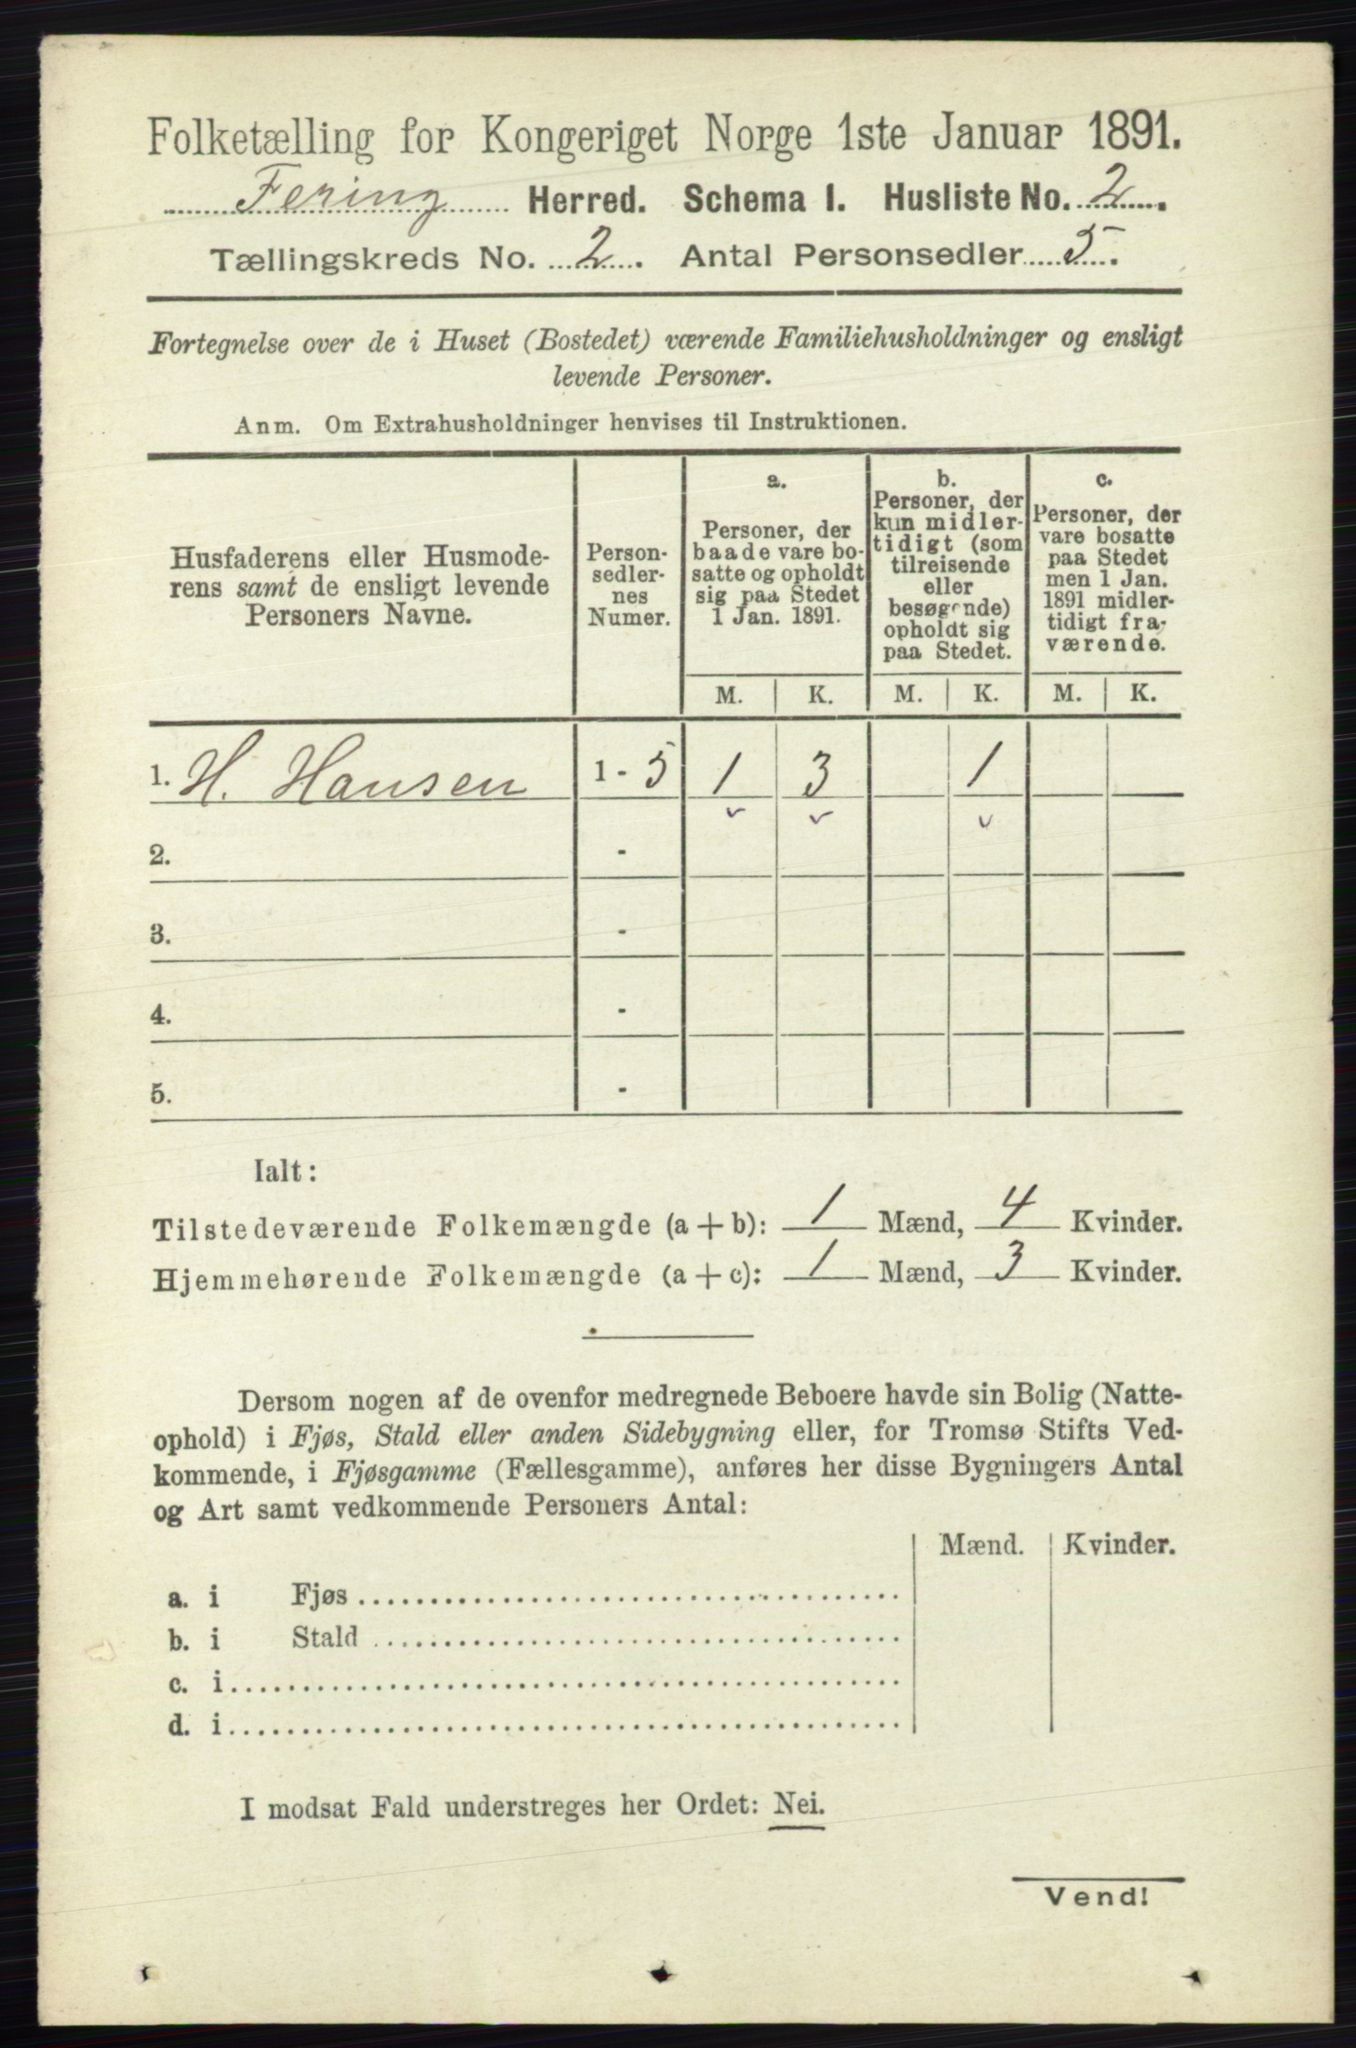 Folketælling for Kongeriget Norge 1ste Januar 1891.
Fering Herred. Schema I. Husliste No. 2.
Tællingskreds No. 2. Antal Personsedler 5.
Fortegnelse over de i Huset (Bostedet) værende Familiehusholdninger og ensligt
levende Personer.
Anm. Om Extrahusholdninger henvises til Instruktionen.
Husfaderens eller Husmode-
rens samt de ensligt levende
Personers Navne.
Person-
sedler-
nes
Numer.
a.
Personer, der
baade vare bo-
satte og opholdt
sig paa Stedet
1 Jan. 1891.
b.
Personer, der
kun midler-
tidigt (som
tilreisende
eller
besøgende)
opholdt sig
paa Stedet.
c.
Personer, der
vare bosatte
paa Stedet
men 1 Jan.
1891 midler-
tidigt fra-
værende.
M. K. M. K. M. K.
1. H. Hansen 1 - 5 1 3 1
2. -
3. -
4. -
5. -
Ialt:
Tilstedeværende Folkemængde (a + b): 1 Mænd, 4 Kvinder.
Hjemmehørende Folkemængde (a + c): 1 Mænd, 3 Kvinder.
Dersom nogen af de ovenfor medregnede Beboere havde sin Bolig (Natte-
ophold) i Fjøs, Stald eller anden Sidebygning eller, for Tromsø Stifts Ved-
kommende, i Fjøsgamme (Fællesgamme), anføres her disse Bygningers Antal
og Art samt vedkommende Personers Antal:
Mænd. Kvinder.
a. i Fjøs
b. i Stald
c. i
d. i
I modsat Fald understreges her Ordet: Nei.
Vend!